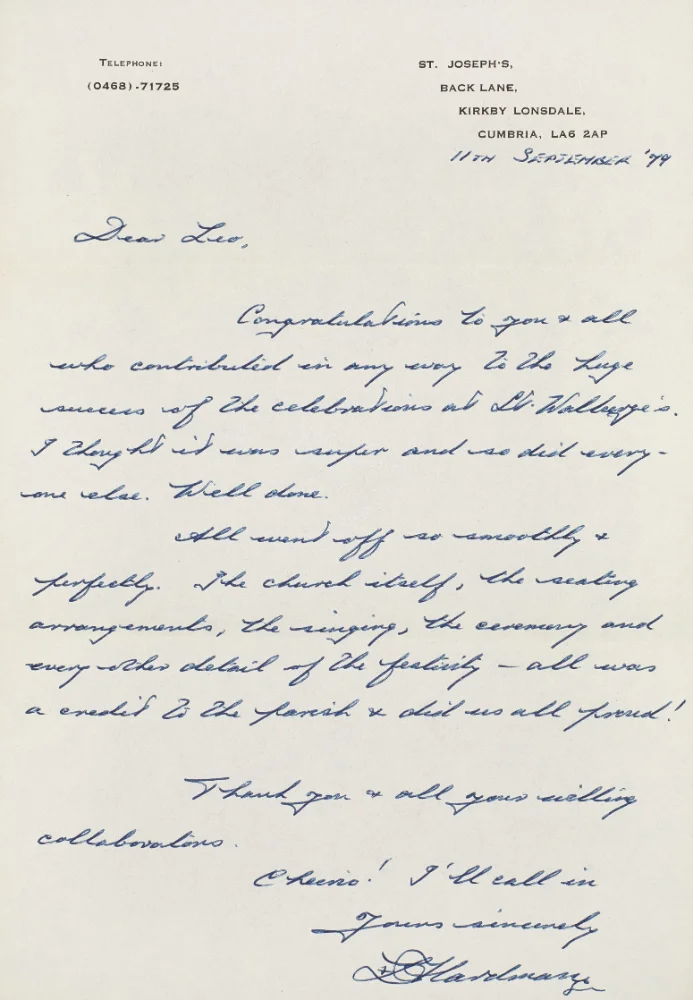 TELEPHONE:
(0468)-71725
ST. JOSEPH'S,
BACK LANE,
KIRKBY LONSDALE,
CUMBRIA, LA6 2AP
11TH SEPTEMBER '79
Dear Leo,
Congratulations to you & all
who contributed in any way to the huge
success of the celebrations at St. Walburge's.
I thought it was super and so did every-
one else. Well done.
All went off so smoothly &
perfectly. The church itself, the seating
arrangements, the singing, the ceremony and
every other detail of the festivity – all was
a credit to the parish & did us all proud!
Thank you & all your willing
collaborators.
Cheerio! I'll call in
Yours sincerely
Hardman